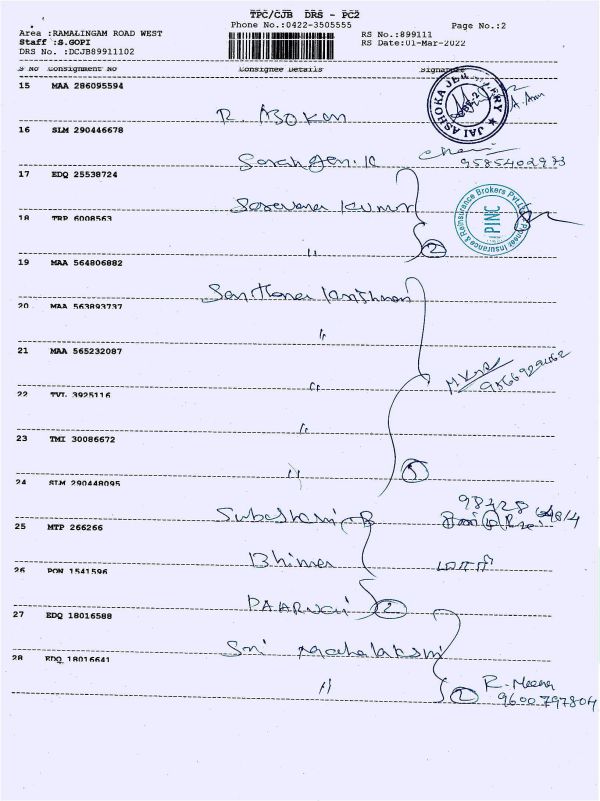 TPC/CJB DRS - PC2
Phone No.:0422-3505555 Page No.:2
Area :RAMALINGAM ROAD WEST RS No.:899111
Staff :S.GOPI RS Date:01-Mar-2022
DRS No. :DCJB89911102
S No Consignment No Consignee Details Signature
15 MAA 286095594
R. ASOKAN
JAI ASHOKA JEWELLERY
16 SLM 290446678
9585402973
17 EDQ 25538724
Saravana Kumar
Pioneer Insurance & Reinsurance Brokers Pvt Ltd
PINC
18 TRP 6008563
" 2
19 MAA 564806882
20 MAA 563893737
"
21 MAA 565232087
"
22 TVL 3925116
"
23 TMI 30086672
" 5
24 SLM 290448095
25 MTP 266266
26 PON 1541596
2
27 EDQ 18016588
Sri Mahalakshmi
28 EDQ 18016641
" 2 R. Meena
9600797804